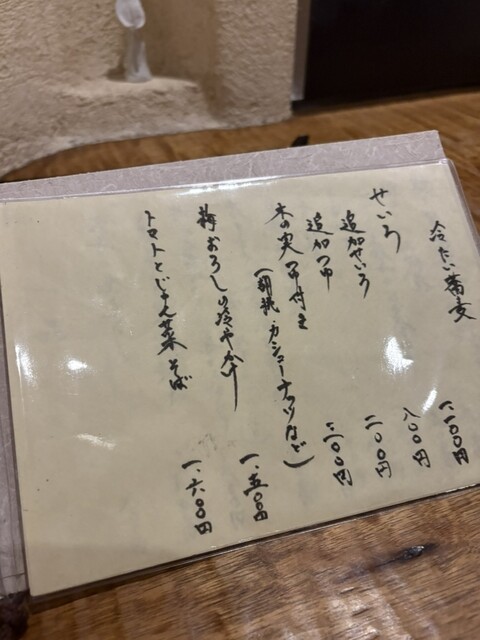 冷たい蕎麦
せいろ 一、一〇〇円
追加せいろ 八〇〇円
追加つゆ 二〇〇円
木の実つゆ付き 三〇〇円
(胡桃・カシューナッツなど)
梅おろし冷やかけ 一、五〇〇円
トマトとじゅん菜そば 一、六〇〇円